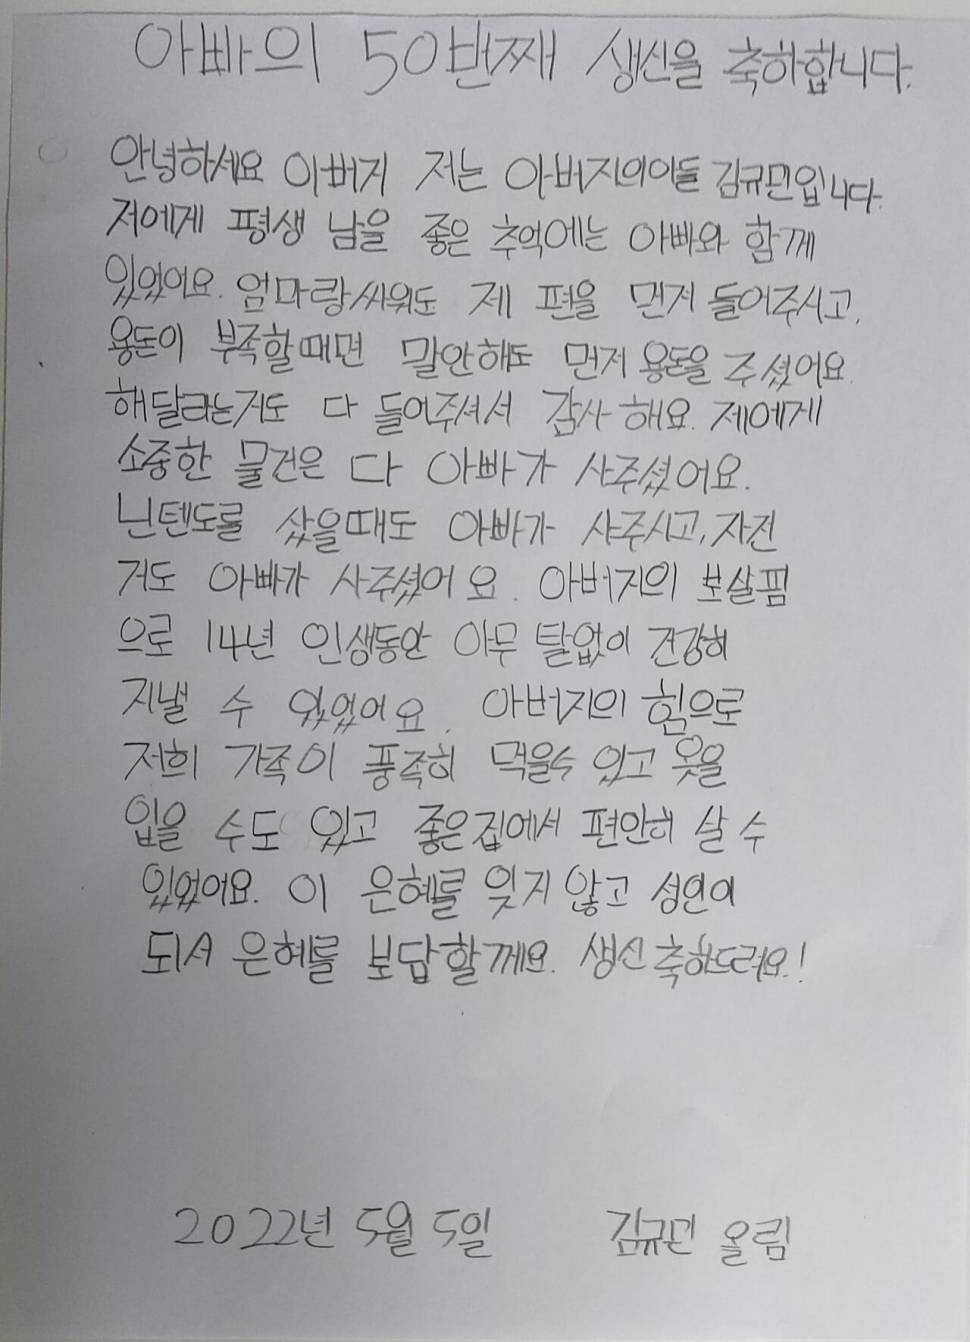 아빠의 50번째 생신을 축하합니다.
안녕하세요 아버지 저는 아버지의아들 김규민입니다.
저에게 평생 남을 좋은 추억에는 아빠와 함께
있었어요. 엄마랑싸워도 제 편을 먼저 들어주시고,
용돈이 부족할때면 말안해도 먼저 용돈을 주셨어요.
해달라는거도 다 들어주셔서 감사해요. 제에게
소중한 물건은 다 아빠가 사주셨어요.
닌텐도를 샀을때도 아빠가 사주시고, 자전
거도 아빠가 사주셨어요. 아버지의 보살핌
으로 14년 인생동안 아무 탈없이 건강히
지낼 수 있었어요. 아버지의 힘으로
저희 가족이 풍족히 먹을수 있고 옷을
입을 수도 있고 좋은집에서 편안히 살 수
있었어요. 이 은혜를 잊지 않고 성인이
되서 은혜를 보답할께요. 생신축하드려요.!
2022년 5월 5일 김규민 올림